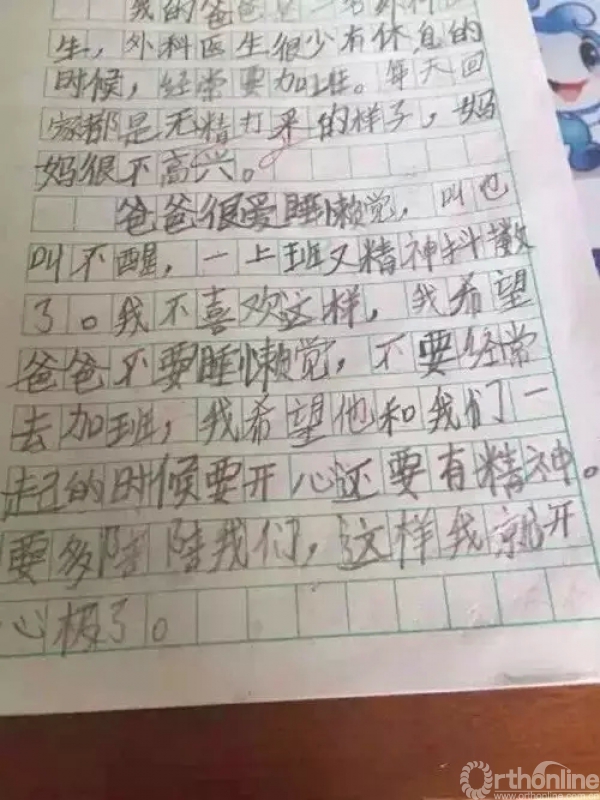 我的爸爸是一名外科医
生，外科医生很少有休息的
时候，经常要加班。每天回
家都是无精打采的样子，妈
妈很不高兴。
爸爸很爱睡懒觉，叫也
叫不醒，一上班又精神抖擞
了。我不喜欢这样，我希望
爸爸不要睡懒觉，不要经常
去加班，我希望他和我们一
起的时候要开心还要有精神。
要多陪陪我们，这样我就开
心极了。
Orthonline
www.orthonline.com.cn